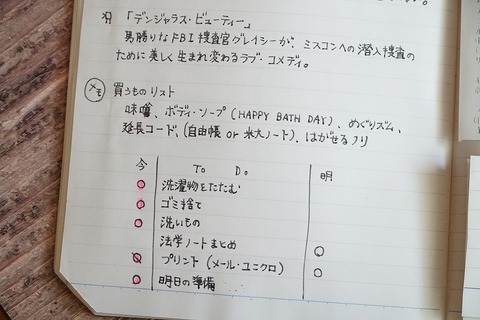 「デンジャラス・ビューティー」
男勝りなFBI捜査官グレイシーが、ミスコンへの潜入捜査の
ために美しく生まれ変わるラブ・コメディ。
メモ 買うものリスト
味噌、ボディ・ソープ(HAPPY BATH DAY)、めぐりズム、
延長コード、(自由帳 or 米大ノート)、はがせるノリ
今 To Do 明
洗濯物をたたむ
ゴミ捨て
洗いもの
法学ノートまとめ
プリント(メール・ユニクロ)
明日の準備